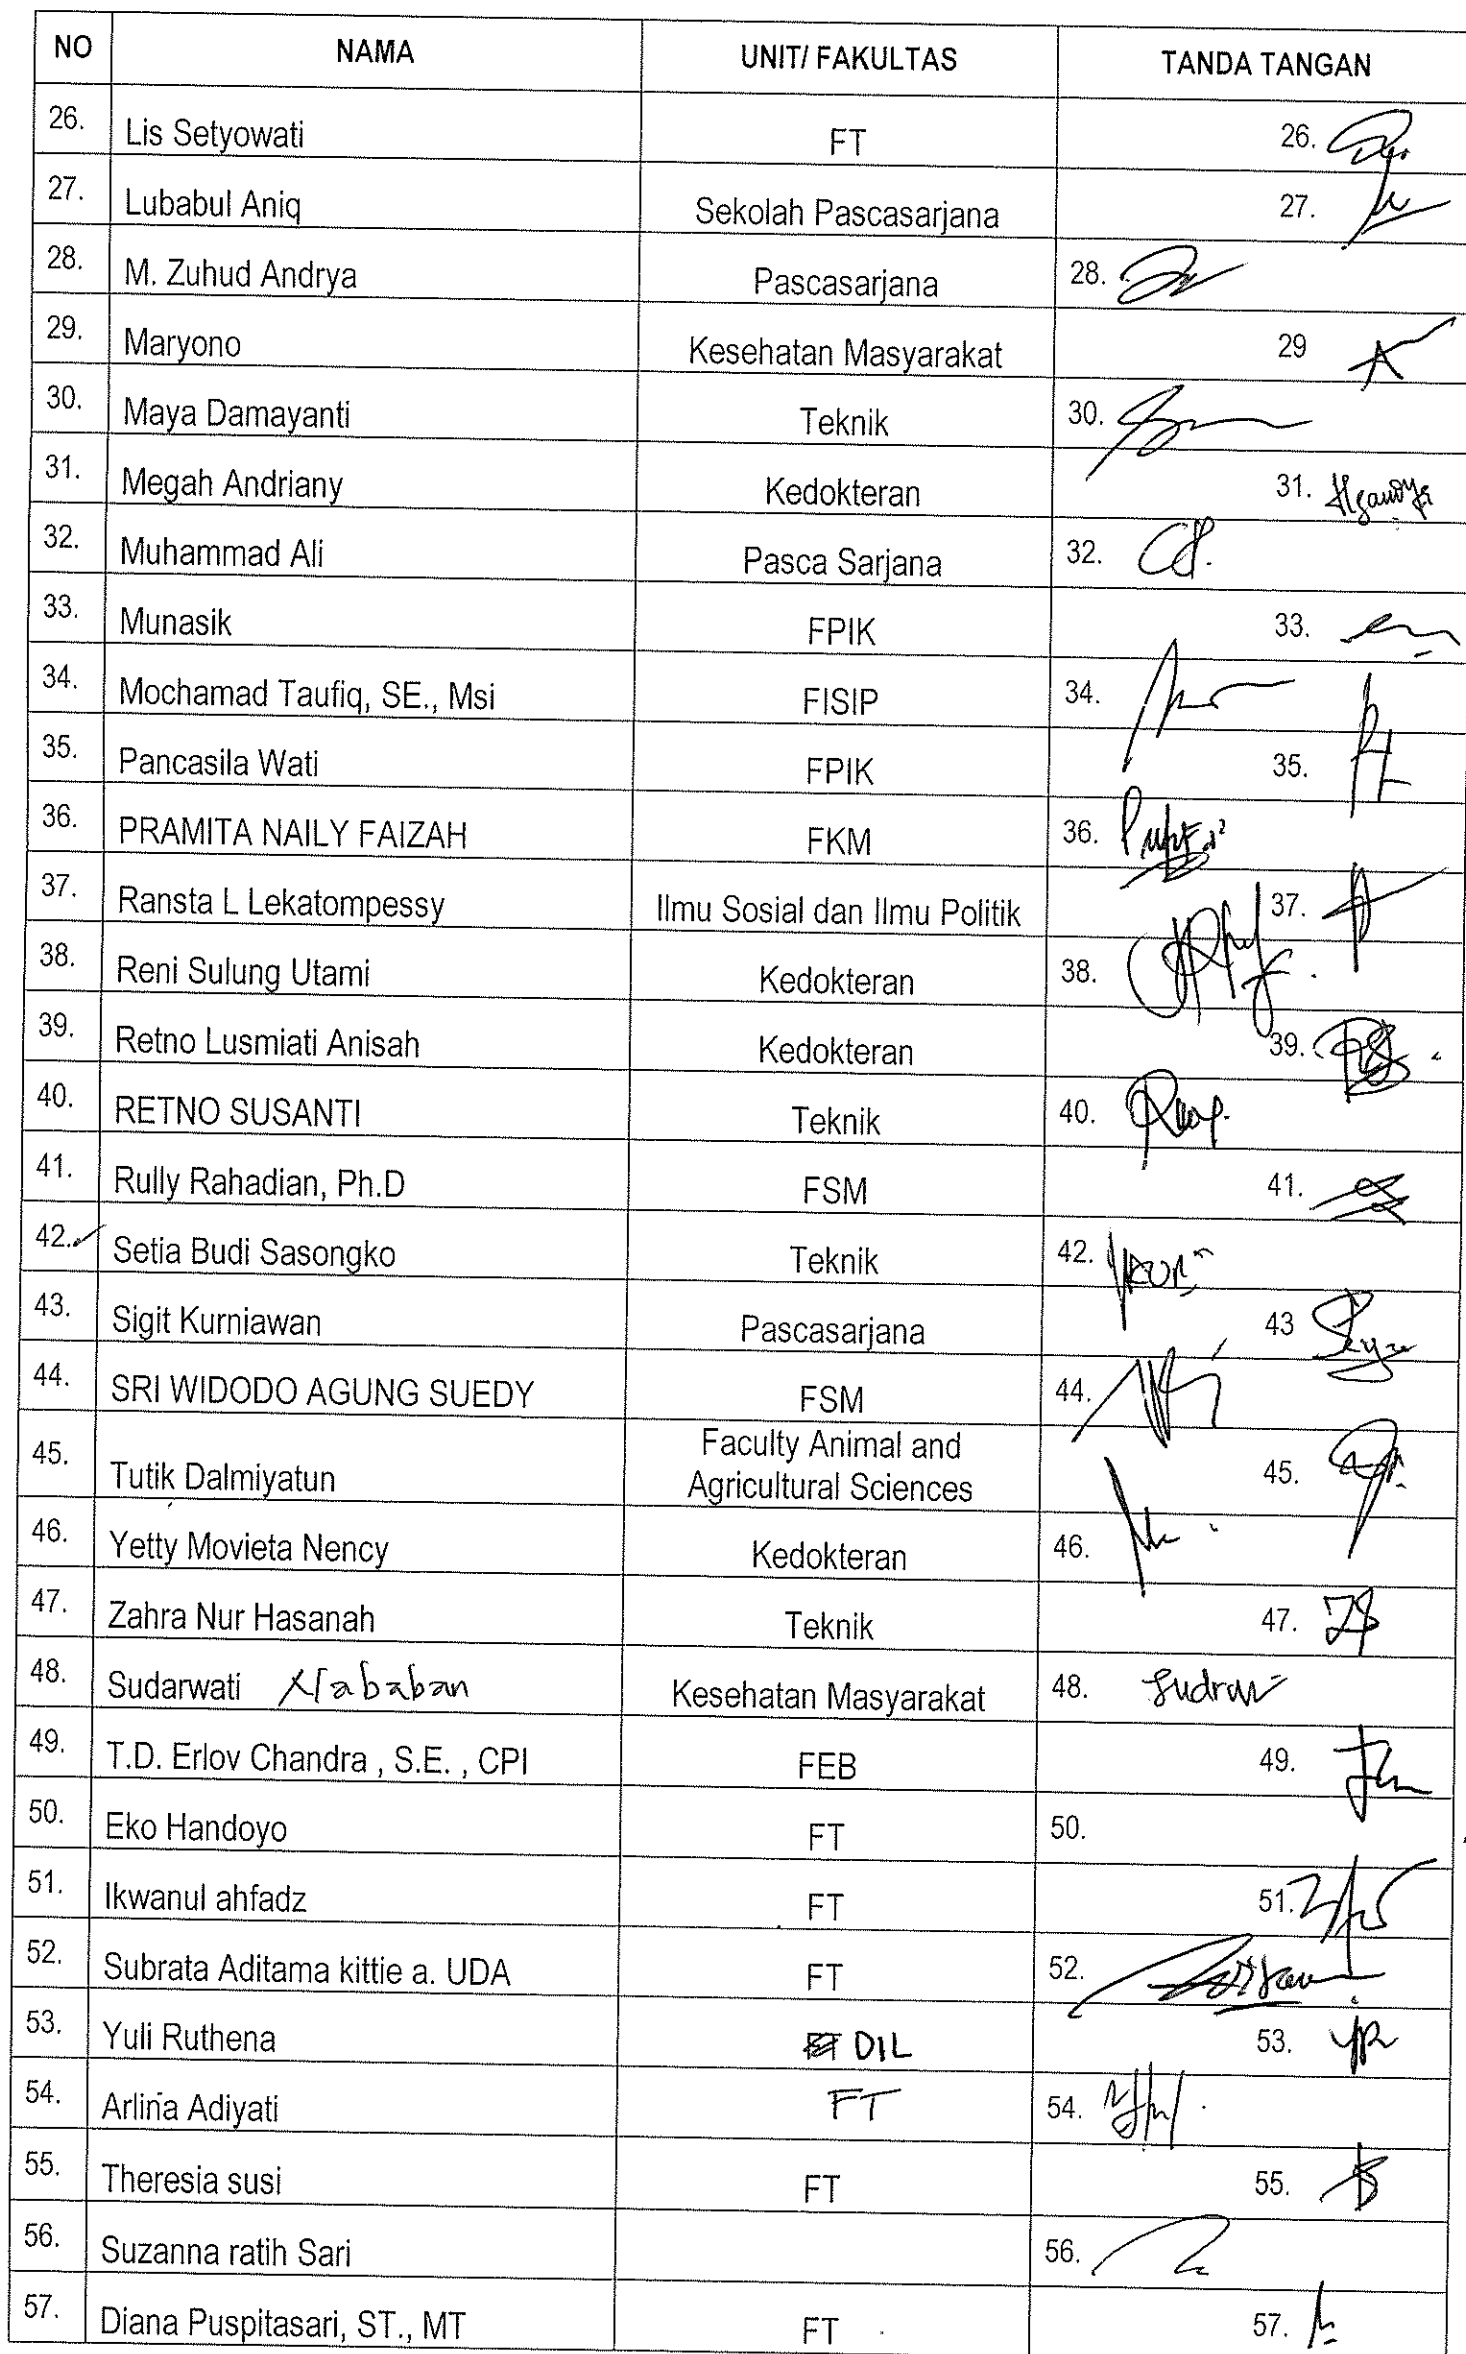 NO NAMA UNIT/ FAKULTAS TANDA TANGAN
26. Lis Setyowati FT 26.
27. Lubabul Aniq Sekolah Pascasarjana 27.
28. M. Zuhud Andrya Pascasarjana 28.
29. Maryono Kesehatan Masyarakat 29
30. Maya Damayanti Teknik 30.
31. Megah Andriany Kedokteran 31.
32. Muhammad Ali Pasca Sarjana 32.
33. Munasik FPIK 33.
34. Mochamad Taufiq, SE., Msi FISIP 34.
35. Pancasila Wati FPIK 35.
36. PRAMITA NAILY FAIZAH FKM 36.
37. Ransta L Lekatompessy Ilmu Sosial dan Ilmu Politik 37.
38. Reni Sulung Utami Kedokteran 38.
39. Retno Lusmiati Anisah Kedokteran 39.
40. RETNO SUSANTI Teknik 40.
41. Rully Rahadian, Ph.D FSM 41.
42. Setia Budi Sasongko Teknik 42.
43. Sigit Kurniawan Pascasarjana 43
44. SRI WIDODO AGUNG SUEDY FSM 44.
45. Tutik Dalmiyatun Faculty Animal and
Agricultural Sciences 45.
46. Yetty Movieta Nency Kedokteran 46.
47. Zahra Nur Hasanah Teknik 47.
48. Sudarwati Nababan Kesehatan Masyarakat 48.
49. T.D. Erlov Chandra , S.E. , CPI FEB 49.
50. Eko Handoyo FT 50.
51. Ikwanul ahfadz FT 51.
52. Subrata Aditama kittie a. UDA FT 52.
53. Yuli Ruthena DIL 53.
54. Arlina Adiyati FT 54.
55. Theresia susi FT 55.
56. Suzanna ratih Sari 56.
57. Diana Puspitasari, ST., MT FT 57.